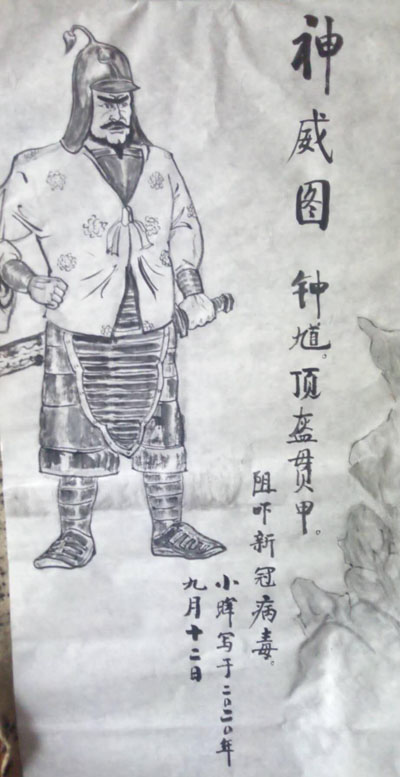 神威图 钟馗。顶盔贯甲。
阻吓新冠病毒。
小晖写于二〇二〇年
九月十二日